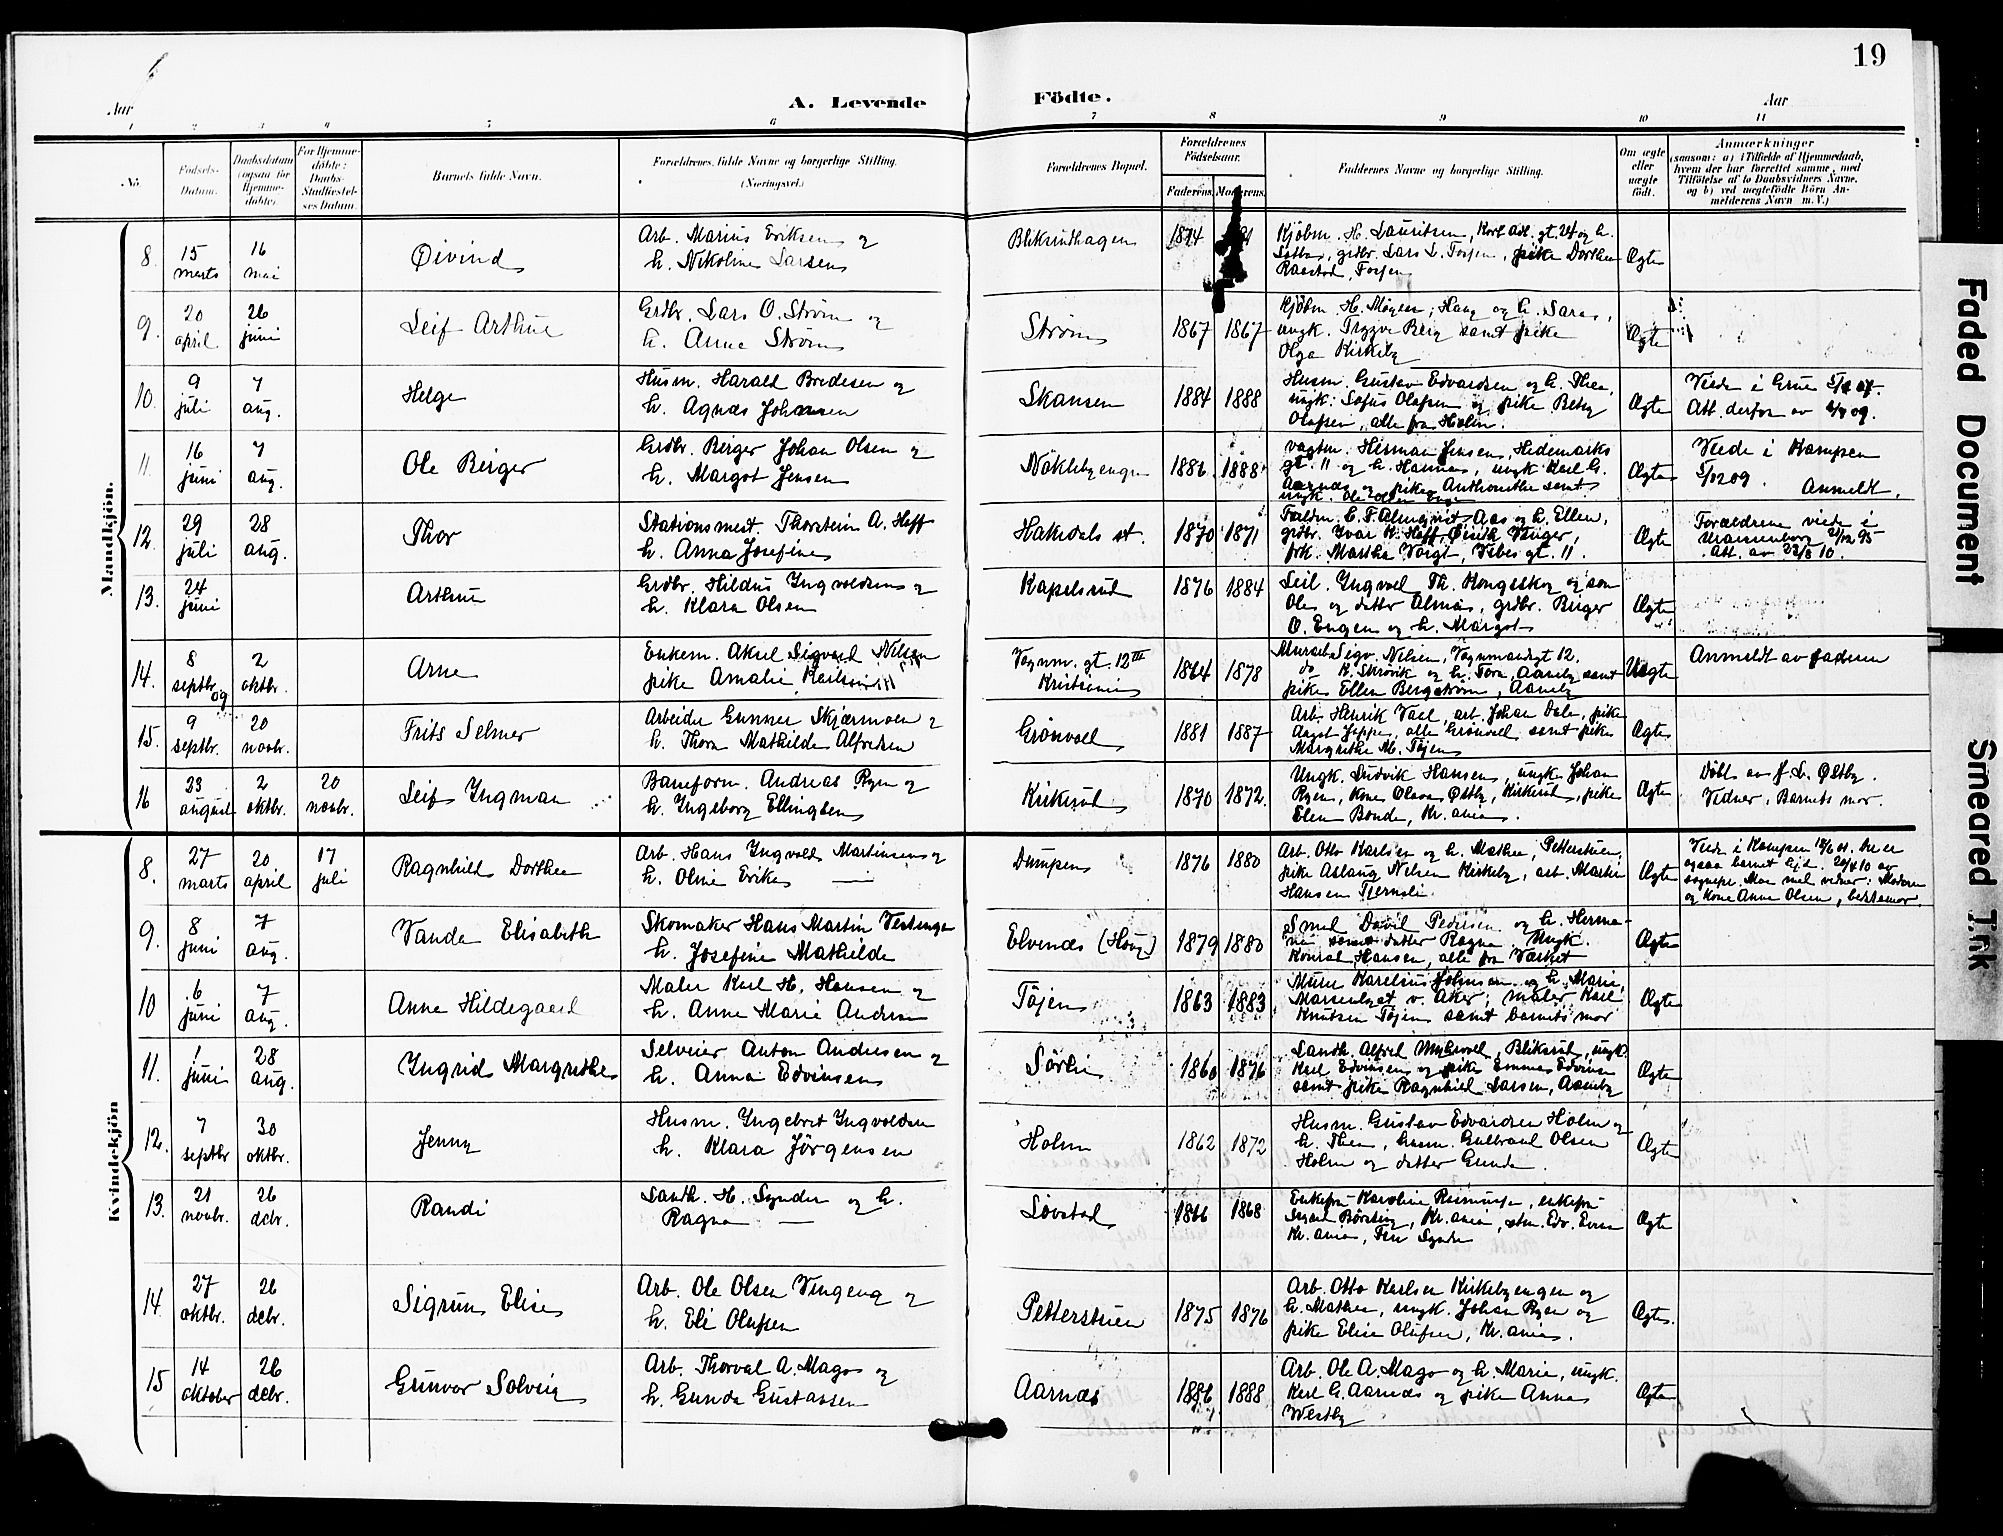 19
Aar
A. Levende
Födte.
Aar
1 2 3 4 5 6 7 8 9 10 11
No.
Fødsels-Datum.
Daabsdatum (ogsaa for Hjemme-døbte).
For Hjemme-døbte: Daabs-Stadfæstel-ses Datum.
Barnets fulde Navn.
Forældrenes fulde Navne og borgerlige Stilling. (Næringsvei.)
Forældrenes Bopæl.
Forældrenes Fødselsaar.
Faderens. Moderens.
Faddernes Navne og borgerlige Stilling.
Om ægte eller uægte født.
Anmærkninger
(saasom: a) i Tilfælde af Hjemmedaab, hvem der har forrettet samme, med Tilføielse af to Daabsvidners Navne, og b) ved uægtefødte Börn An-melderens Navn m. V.)
Mandkjön.
8. 15 marts 16 mai Øivind
Arb. Marius Eriksen og
h. Nikoline Larsen
Bliksrudhagen 1874
Kjøbm. H. Lauritsen, Karl Adl. gt. 24 og h.
grdbr. Lars L. Tosjen, pike Dorthea
Raastad, Tosjen
Ægte
9. 20 april 26 juni Leif Arthur
Grdbr. Lars O. Strøm og
h. Anna Strøm
Strøm 1867 1867
Kjøbm. H. Mogen, Haug og h. Sara,
ungk. Trygve Berg samt pike
Olga Kirkeby
Ægte
10. 9 juli 7 aug. Helge
Husm. Harald Bredesen og
h. Agnes Johansen
Skansen 1884 1888
Husm. Gustav Edvardsen og h. Thea,
ungk. Sofus Olafsen og pike Betsy
Olafsen, alle fra Holm.
Ægte
Viede i Grue
Att. derfor av
11. 16 juni 7 aug. Ole Birger
Grdbr. Birger Johan Olsen og
h. Margot Jensen
Nöklebyengen 1886 1888
Vagtm. Herman Jensen, Hedemarks
gt. 11 og h. Hanna, ungk. Karl G.
Aarnæs og pike Anthonette samt
ungk. Ole
Ægte
Viede i Kampen
5/12 09. Anmeldt.
12. 29 juli 28 aug. Thor
Stationsmest. Thorstein A. Hoff
h. Anna Josefine
Hakedals st. 1870 1871
Fuldm. C. F. Almqvist Aas og h. Ellen,
grdbr. Ivar K. Hoff, Vinger,
frk. Martha Voigt, Vibes gt. 11.
Ægte
Forældrene viede i
Att. av 23/8 10.
13. 24 juni Arthur
Grdbr. Hildus Ingvoldsen og
h. Klara Olsen
Kapelsrud 1876 1884
Leil. Ingvoel Th. Kongsby og søn
Ole og datter Alma, grdbr. Birger
O. Engen og h. Margot
Ægte
14. 8 septbr. og 2 oktbr. Arne
Enkem. Aksel Sigvard Nilsen
pike Amalie Karlsen
Vognm. gt. 12 III
Kristiania
1864 1878
Murer Sigv. Nilsen, Vognmandsgt 12.
do K. Skrøvik og h. Tora, Aaneby samt
pike Ellen Bergstrøm, Aaneby
Uægte
Anmeldt av faderen
15. 9 septbr. 20 novbr. Frits Selmer
Arbeider Gunner Skjærmoen og
h. Thora Mathilde Alfredsen
Grønvold 1881 1887
Arb. Henrik Vael, arb. Johan Dale, pike
Aagot Jeppe, alle Grønvold samt pike
Margrethe M. Tøjen
Ægte
16 23 august 2 oktbr. 20 novbr. Leif Ingman
Baneform. Andreas Ryen og
h. Ingeborg Ellingsen
Kirkerud 1870 1872.
Ungk. Ludvik Hansen, ungk. Johan
Ryen, kone Olava Østby, Kirkerud, pike
Elen Bonde, Kr.ania.
Ægte
Døbt av J. L. Østby.
Vidner: Barnets mor.
Kvindekjön
8. 27 marts 20 april 17 juli Ragnhild Dorthea
Arb. Hans Ingvold Martinsen og
h. Oline Erika —
Dumpen 1876 1880
Arb. Otto Karlsen og h. Mathea, Petterstuen,
pike Aslaug Nilsen Kirkeby, arb. Martin
Hansen Tjernsli.
Ægte
Viede i Kampen
ogsaa barnet hjd. av
sognepr. Moe med vidner: Moderen
og kone Anne Olsen, bestemor.
9. 8 juni 7 aug. Vanda Elisabeth
Skomaker Hans Martin Vestengen
h. Josefine Mathilde
Elvenæs (Haug) 1879 1880
Smed David Pedersen og h. Herma-
nie samt datter Ragna, Ungk.
Konrad Hansen, alle fra Værket
Ægte
10 6 juni 7 aug. Anne Hildegard
Maler Karl H. Hansen og
h. Anne Marie Andersen
Töjen 1863 1883
Murer Karelius Johnsen og h. Marie,
Marienlyst v. Aker; maler Karl
Knutsen Tøjen samt barnets mor
Ægte
11. 1 juni 28 aug. Ingrid Margrethe
Selveier Anton Andresen og
h. Anna Edvinsen
Sörli 1860 1876
Landh. Alfred Myhrvold, Bliksrud, ungk.
Karl Edvinsen og pike Emma Edvinsen
samt pike Ragnhild Larsen, Aaneby
Ægte
12. 7 septbr 30 oktbr. Jenny
Husm. Ingebret Ingvoldsen
h. Klara Jörgensen
Holm 1862 1872
Husm. Gustav Edvardsen Holm og
h. Thea, husm. Gulbrand Olsen
Holm og datter Gunda.
Ægte
13. 21 novbr. 26 dcbr. Randi
Landh. H. Synder og h.
Ragna —
Løvstad 1866 1868
Enkefru Karoline Rasmusen, enkefru
Kr.ania, Edv. Evensen
Kr.ania, Finn Synder
Ægte
14. 27 oktbr. 26 dcbr. Sigrun Elise
Arb. Ole Olsen Vingeng og
h. Eli Olufsen
Petterstuen 1875 1876
Arb. Otto Karlsen Kirkebyengen og
h. Mathea, ungk. Johan Ryen og
pike Elise Olufsen, Kr.ania.
Ægte.
15 14 oktober 26 dcbr. Gunvor Solveig
Arb. Thorval A. Mago og
h. Gunda Gustavsen
Aarnæs 1886 1888
Arb. Ole A. Mago og h. Marie, ungk.
Karl G. Aarnæs og pike Anna
Westby
Ægte
Faded Document
Smeared Ink